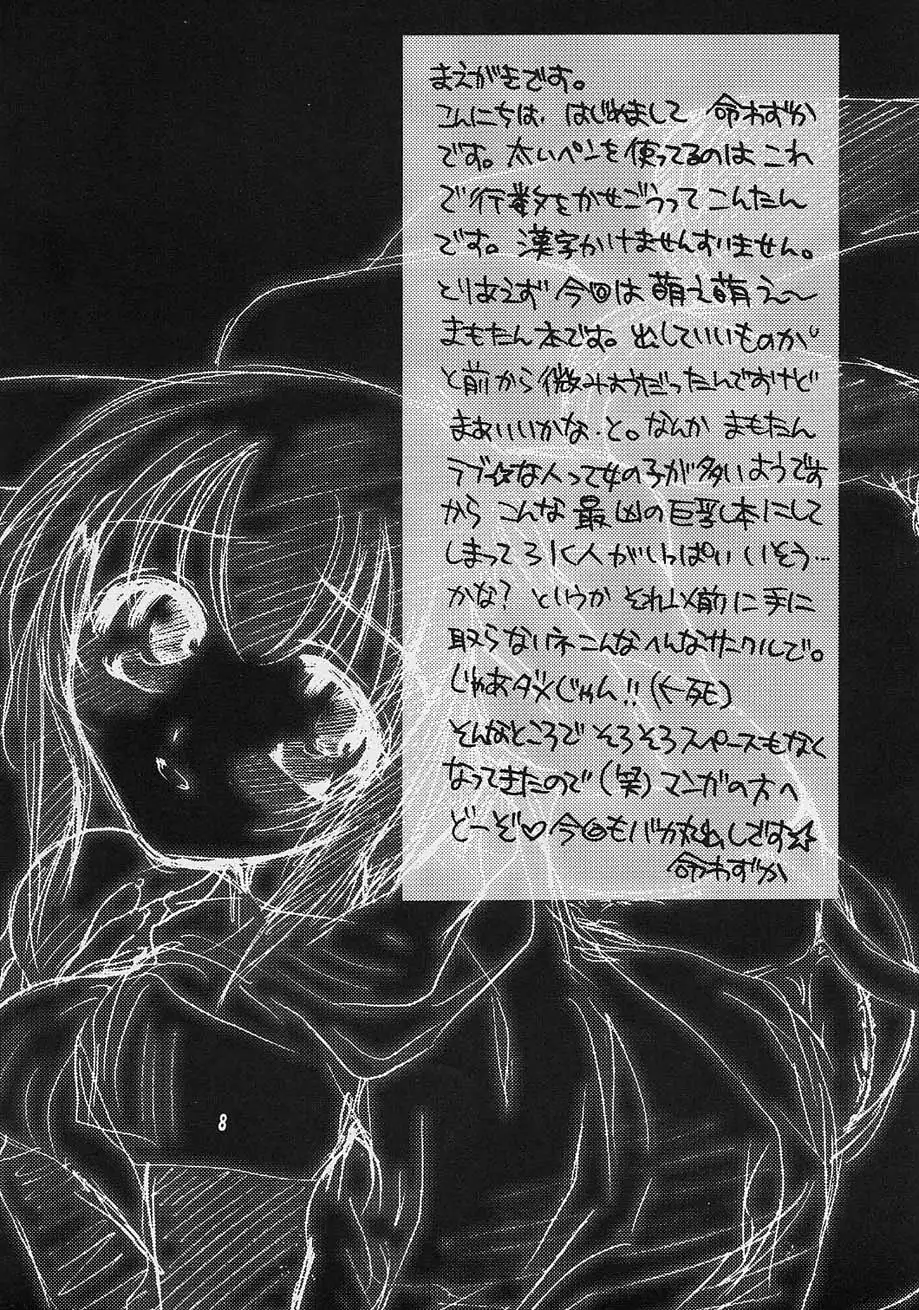 まえがきです。
こんにちは、はじめまして 命わずか
です。太いペンを使ってるのは これ
で行数をかせごうって こんたん
です。漢字かけませんすいません。
とりあえず 今回は 萌え萌え〜
まもたん本です。出していいものか
と前から微みょうだったんですけど
まぁいいかな、と。なんか まもたん
ラブ☆な人って女の子が多いようです
から こんな 最凶の巨乳本にして
しまって ろく人がいっぱいいそう…
かな? というか それ以前に手に
取らないネこんなへんなサークルで。
じゃあダメじゃん!!(←死)
そんなところで そろそろスペースもなく
なってきたので(笑)マンガの方へ
どーぞ♡今回もバカ丸出しです☆
命わずか
8